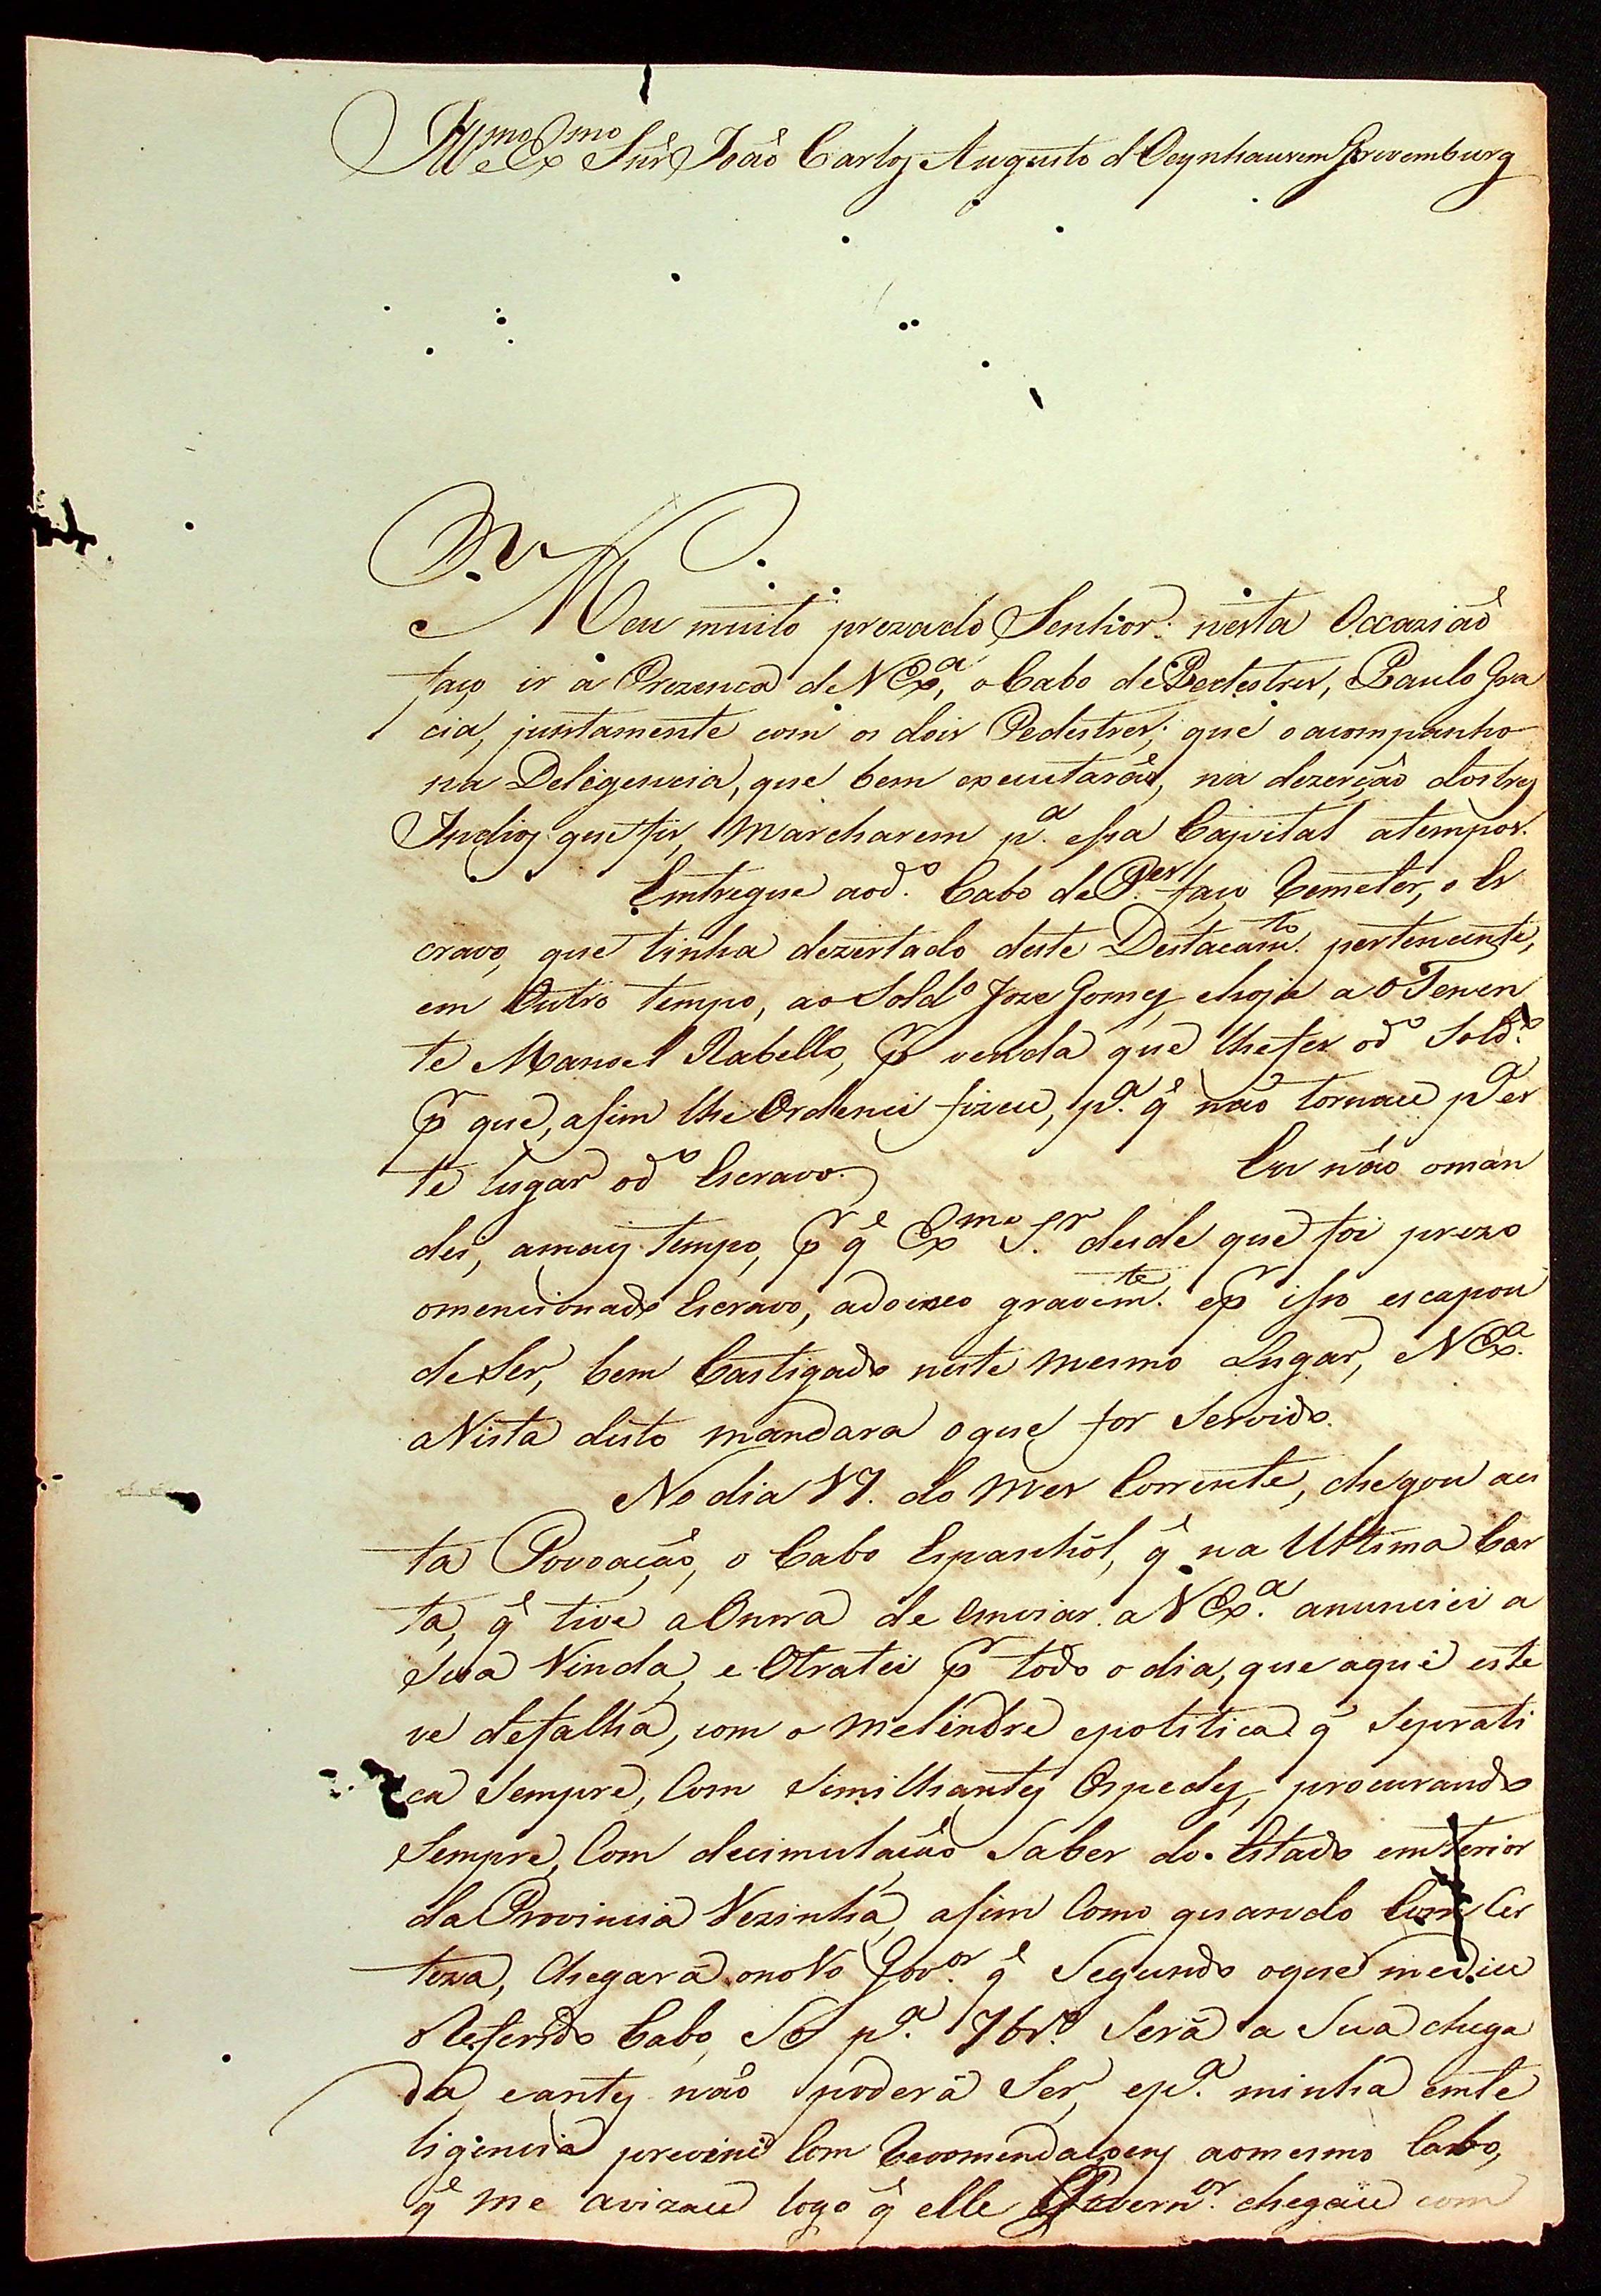 Illmo e Exmo Snr João Carlos Augusto d'Oeynhausen Grevemburg
Meu muito prezado Senhor: nesta Occazião
faço ir á Prezenca de VExa, o Cabo de Pedestres, Paulo Gra
cia, juntamente com os dois Pedestres; que o acompanho
na Deligencia, que bem executarão, na dezerção dos tres
Indios que fis, Marcharem pa. essa Capital atempos.
Emtregue aodo. Cabo de Pes. faço Remeter, o Es
cravo, que tinha dezertado deste Destacamto. pertencente,
em Outro tempo, ao Soldo Joze Gomes, ehoje a o Tenen
te Manoel Rabello, pr venda que lhefes odo Soldo.
pr que, asim lhe Ordenei fizece, pa. q̃ não tornace pa es
te lugar odo Escravo. Eu não oman
dei, amais tempo, pr q̃ Exmo Sr. desde que foi prezo
omencionado Escravo, adoeceo gravemte. epr isso escapou
deSer, bem Castigado neste mesmo Lugar, e VExa.
aVista disto mandara oque for Servido.
No dia 17. do Mes Corrente, chegou aes
ta Povoação, o Cabo Espanhól, q̃ na Ultima Car
ta, q̃ tive aOnrra de emviar. a VExa. anunciei a
Sua Vinda, e Otratei pr todo o dia, que aqui este
ve defalha, com o Melindre epolitica q̃ Seprati
ca Sempre, Com Similhantes Ospedes, procurando
Sempre, Com decimulação Saber do Estado emterior
da Provincia Vezinha, asim Como quando Com Cer
teza, Chegará onoVo Govor. q̃ Segundo oque medice
oReferido Cabo, Só pa. 7bro. Será a Sua chega
da, eantes não poderá Ser, epa. minha emte
ligencia previni Com Recomendaçoens aomesmo Cabo,
q̃ me avizace logo q̃ elle Governor. chegace com